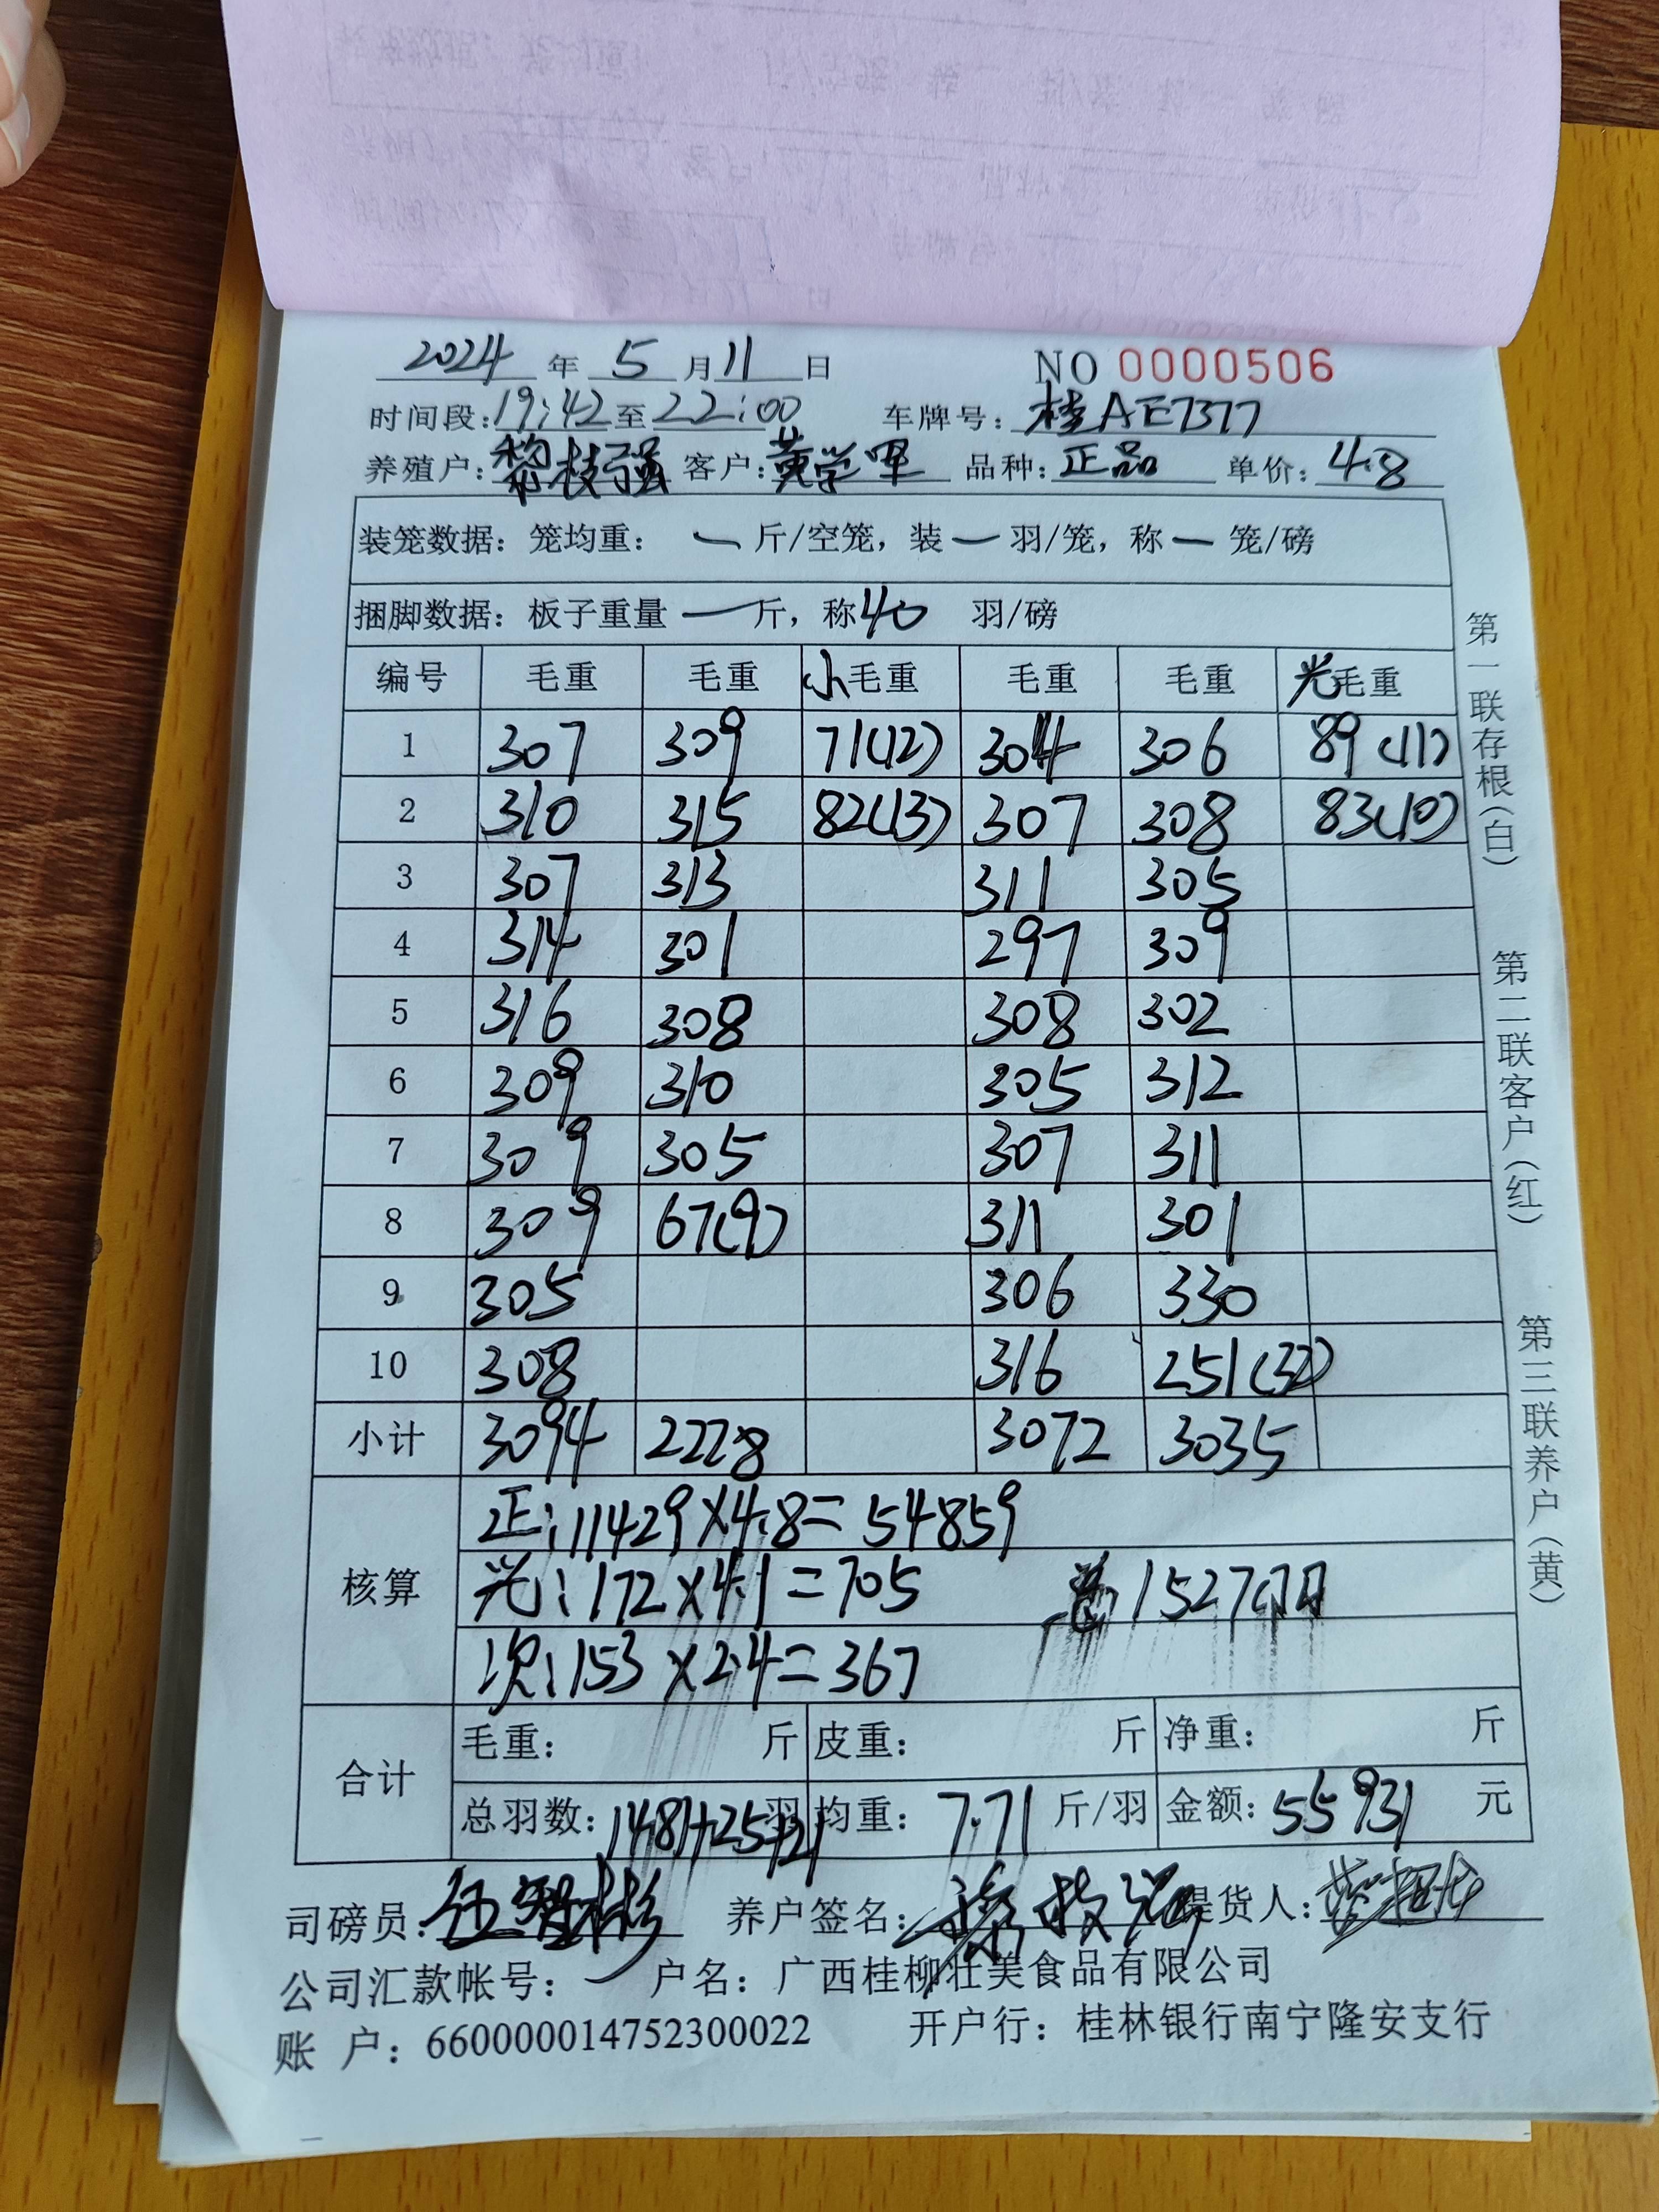 2024 年 5 月 11 日 NO 0000506
时间段: 19:42 至 22:00 车牌号: 桂AE7377
养殖户: 黎枝强 客户: 黄学军 品种: 正品 单价: 4.8
装笼数据: 笼均重: 一 斤/空笼, 装 一 羽/笼, 称 一 笼/磅
捆脚数据: 板子重量 一 斤, 称 40 羽/磅
编号 毛重 毛重 小毛重 毛重 毛重 光毛重
1 307 309 71(12) 304 306 89(11)
2 310 315 82(13) 307 308 83(10)
3 307 313 311 305
4 314 301 297 309
5 316 308 308 302
6 309 310 305 312
7 309 305 307 311
8 309 67(9) 311 301
9 305 306 330
10 308 316 251(32)
小计 3094 2228 3072 3035
核算
正: 11429×4.8=54859
光: 172×4.1=705 总 1527羽
次: 153×2.4=367
合计
毛重: 斤 皮重: 斤 净重: 斤
总羽数: 1481+25+21 羽 均重: 7.71 斤/羽 金额: 55931 元
司磅员: 伍智彬 养户签名: 黎枝强 提货人:
公司汇款帐号: 户名: 广西桂柳壮美食品有限公司
账 户: 660000014752300022 开户行: 桂林银行南宁隆安支行
第一联存根(白)
第二联客户(红)
第三联养户(黄)